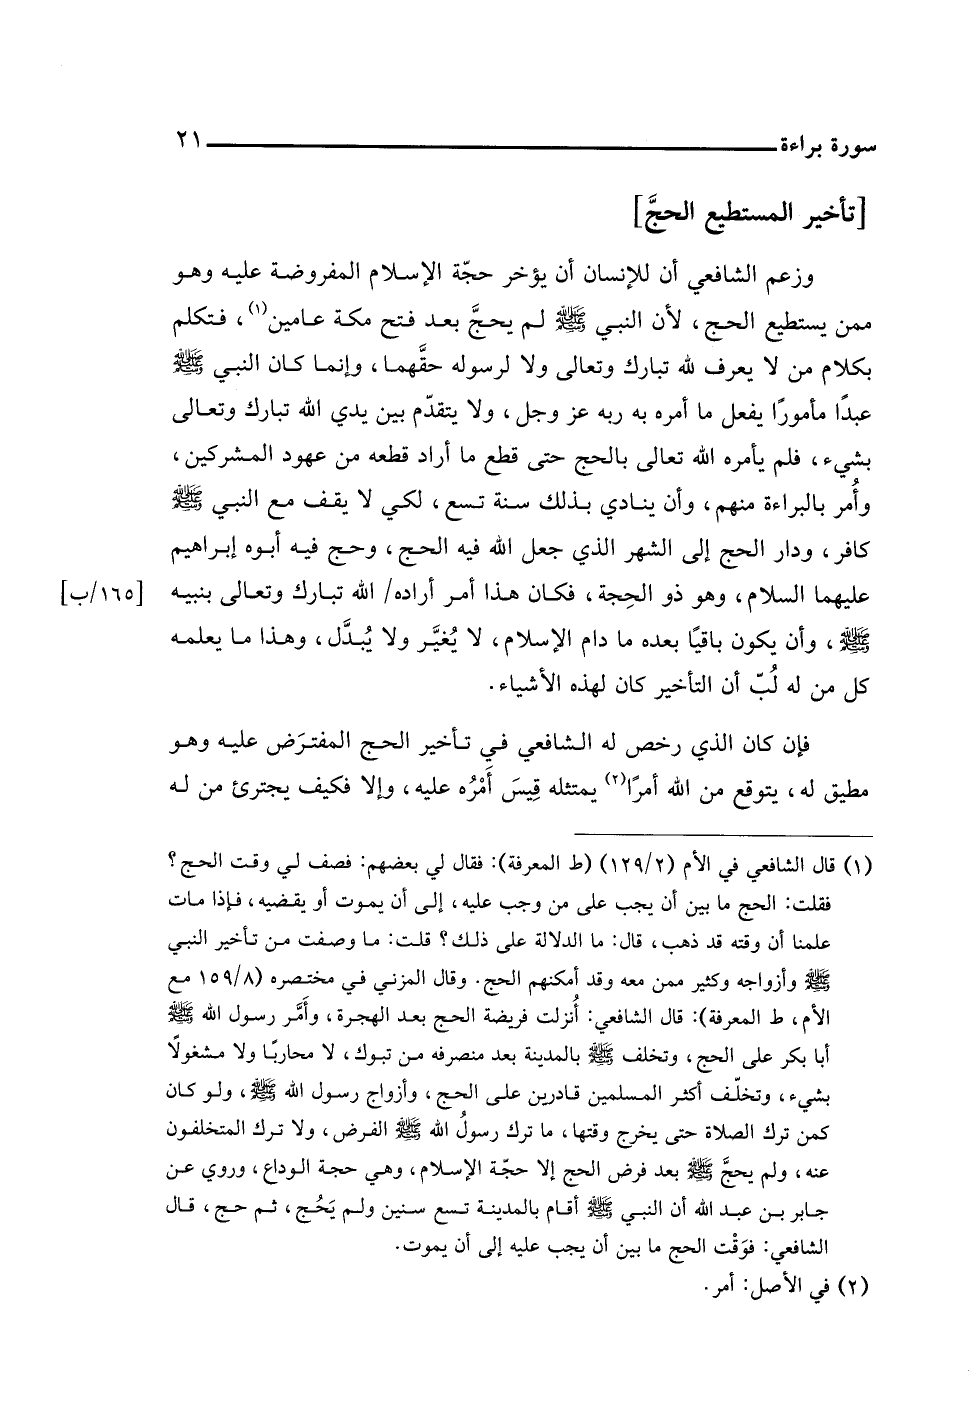 سورة براءة ٢١
[تأخير المستطيع الحجَّ]
وزعم الشافعي أن للإنسان أن يؤخر حجّة الإسلام المفروضة عليه وهو
ممن يستطيع الحج، لأن النبي ﷺ لم يحجَّ بعد فتح مكة عامين(١)، فتكلم
بكلام من لا يعرف لله تبارك وتعالى ولا لرسوله حقَّهما، وإنما كان النبي ﷺ
عبدًا مأمورًا يفعل ما أمره به ربه عز وجل، ولا يتقدّم بين يدي الله تبارك وتعالى
بشيء، فلم يأمره الله تعالى بالحج حتى قطع ما أراد قطعه من عهود المشركين،
وأُمر بالبراءة منهم، وأن ينادي بذلك سنة تسع، لكي لا يقف مع النبي ﷺ
كافر، ودار الحج إلى الشهر الذي جعل الله فيه الحج، وحج فيه أبوه إبراهيم
عليهما السلام، وهو ذو الحِجة، فكان هذا أمر أراده/ الله تبارك وتعالى بنبيه [١٦٥/ب]
ﷺ، وأن يكون باقيًا بعده ما دام الإسلام، لا يُغيَّر ولا يُبدَّل، وهذا ما يعلمه
كل من له لُبّ أن التأخير كان لهذه الأشياء.
فإن كان الذي رخص له الشافعي في تأخير الحج المفترَض عليه وهو
مطيق له، يتوقع من الله أمرًا(٢) يمتثله قِيسَ أَمْرُه عليه، وإلا فكيف يجترئ من له
(١) قال الشافعي في الأم (١٢٩/٢) (ط المعرفة): فقال لي بعضهم: فصف لي وقت الحج؟
فقلت: الحج ما بين أن يجب على من وجب عليه، إلى أن يموت أو يقضيه، فإذا مات
علمنا أن وقته قد ذهب، قال: ما الدلالة على ذلك؟ قلت: ما وصفت من تأخير النبي
ﷺ وأزواجه وكثير ممن معه وقد أمكنهم الحج. وقال المزني في مختصره (١٥٩/٨ مع
الأم، ط المعرفة): قال الشافعي: أُنزلت فريضة الحج بعد الهجرة، وأَمَّر رسول الله ﷺ
أبا بكر على الحج، وتخلف ﷺ بالمدينة بعد منصرفه من تبوك، لا محاربًا ولا مشغولًا
بشيء، وتخلّف أكثر المسلمين قادرين على الحج، وأزواج رسول الله ﷺ، ولو كان
كمن ترك الصلاة حتى يخرج وقتها، ما ترك رسولُ الله ﷺ الفرض، ولا ترك المتخلفون
عنه، ولم يحجَّ ﷺ بعد فرض الحج إلا حجّة الإسلام، وهي حجة الوداع، وروي عن
جابر بن عبد الله أن النبي ﷺ أقام بالمدينة تسع سنين ولم يَحُج، ثم حج، قال
الشافعي: فوَقْت الحج ما بين أن يجب عليه إلى أن يموت.
(٢) في الأصل: أمر.